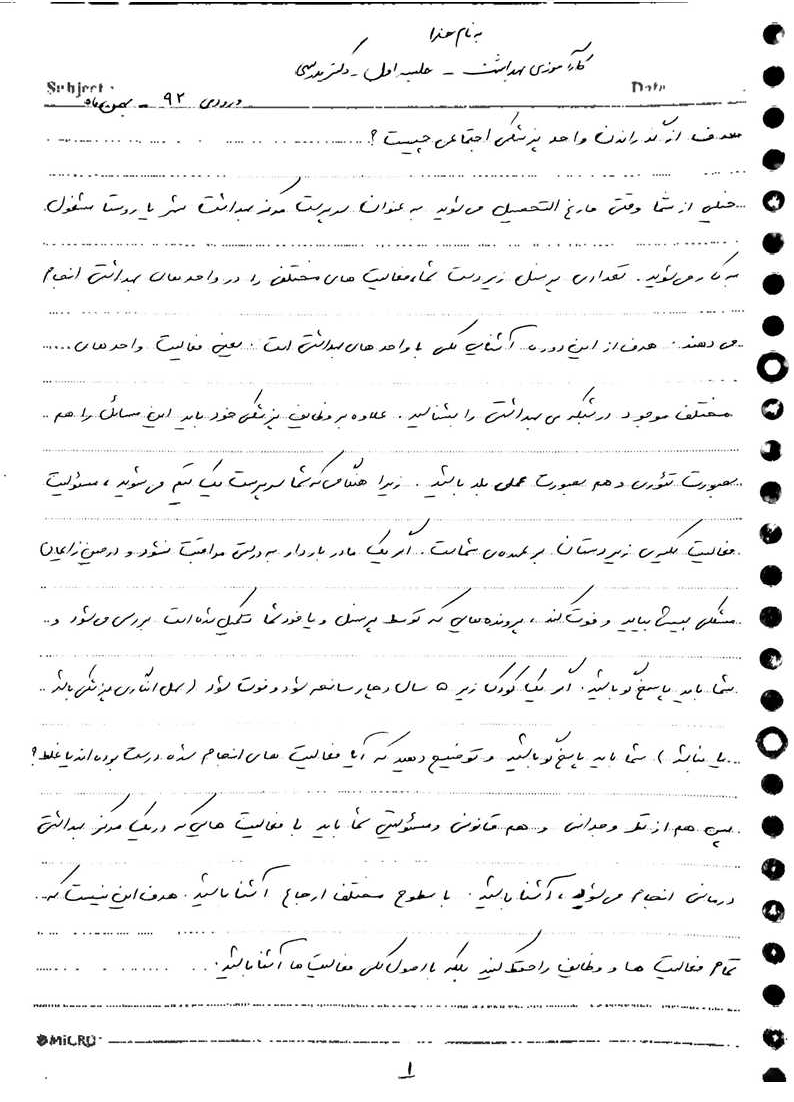 به نام خدا
کارآموزی بهداشت - جلسه اول - دکتر مدرسی
Subject:
Date
ورودی ۹۲ - بهمن ماه
هدف از گذراندن واحد پزشکی اجتماعی چیست؟
خیلی از شما وقتی فارغ التحصیل می شوید به عنوان سرپرست مرکز بهداشت شهر یا روستا مشغول
به کار می شوید. تعدادی پرسنل زیر دست شما، فعالیت های مختلف را در واحدهای بهداشتی انجام
می دهند. هدف از این دوره آشنایی کلی با واحدهای بهداشتی است. یعنی فعالیت واحدهای
مختلف موجود در شبکه ی بهداشتی را بشناسید. علاوه بر وظایف پزشکی خود باید این مسائل را هم
بصورت تئوری و هم بصورت عملی بلد باشید. زیرا هنگامی که شما سرپرست یک تیم می شوید، مسئولیت
فعالیت کلیه ی زیردستان بر عهده ی شماست. اگر یک مادر باردار به درستی مراقبت نشود و در حین زایمان
مشکلی پیش بیاید و فوت کند، پرونده هایی که توسط پرسنل و یا خود شما تکمیل شده است بررسی می شود و
شما باید پاسخگو باشید. اگر یک کودک زیر ۵ سال دچار سانحه شود و فوت شود (سهل انگاری پزشکی باشد
یا نباشد) شما باید پاسخگو باشید و توضیح دهید که آیا فعالیت های انجام شده درست بوده اند یا غلط؟
پس هم از نظر وجدانی و هم قانونی و مسئولیتی شما باید با فعالیت هایی که در یک مرکز بهداشتی
درمانی انجام می شود، آشنا باشید. با سطوح مختلف ارجاع آشنا باشید. هدف این نیست که
تمام فعالیت ها و وظایف را حفظ کنید بلکه با اصول کلی فعالیت ها آشنا باشید.
MICRO
۱